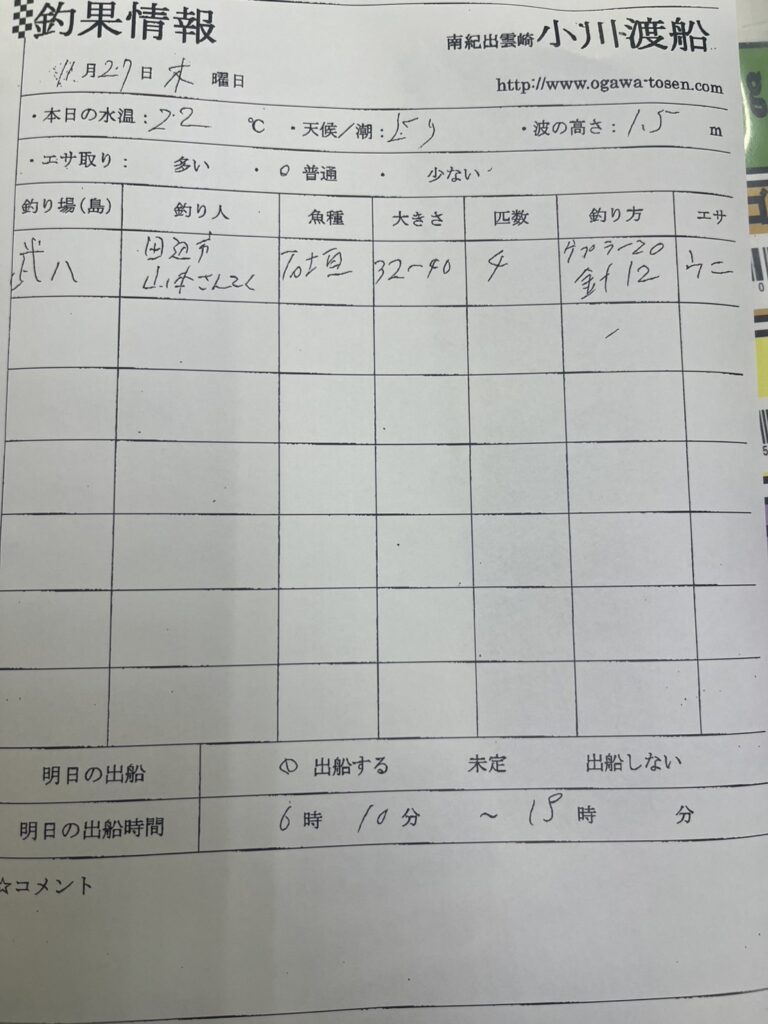 釣果情報
南紀出雲崎 小川渡船
11月27日 木 曜日
http://www.ogawa-tosen.com
・本日の水温：22 ℃ ・天候／潮： ・波の高さ：1.5 m
・エサ取り： 多い ・ 普通 ・ 少ない
釣り場(島) 釣り人 魚種 大きさ 匹数 釣り方 エサ
武八 田辺市 山本さん 石垣 32〜40 4 ケプラー20 針12 ウニ
明日の出船 ① 出船する 未定 出船しない
明日の出船時間 6時 10分 〜 時 分
☆コメント